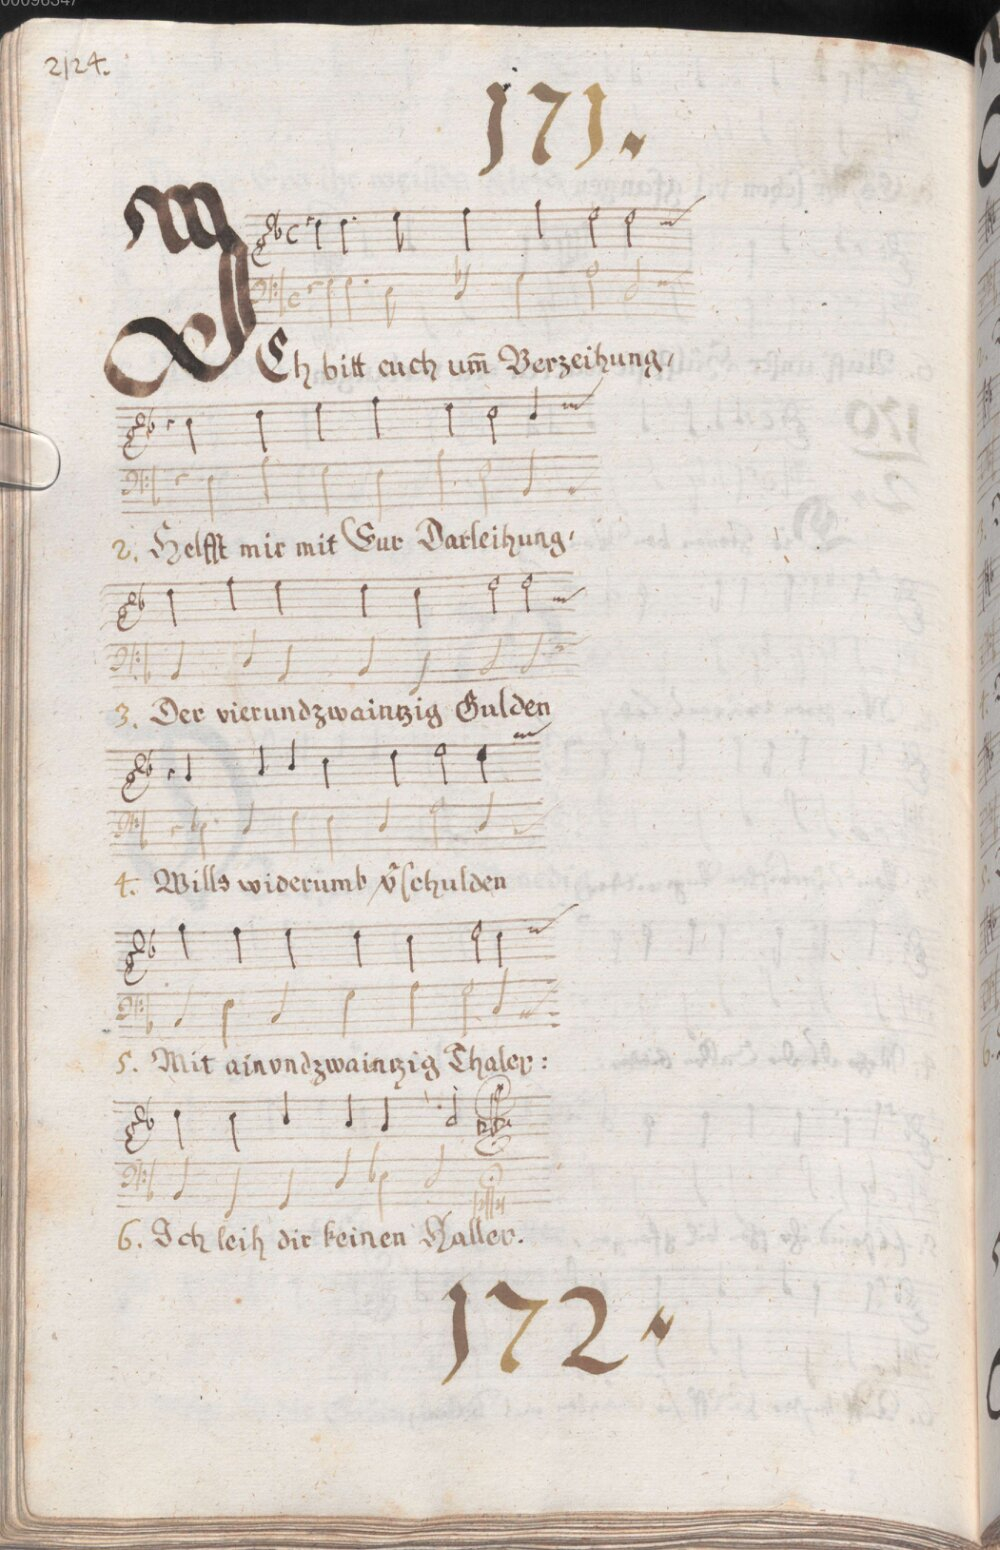 00096347
2124.
171.
ICh bitt euch um̄ Verzeihung,
2. Helfft mir mit Eur Darleihung,
3. Der vierundzwaintzig Gulden
4. Wills widerumb v̄schulden
5. Mit ainvndzwaintzig Thaler:
6. Ich leih dir keinen Haller.
172.